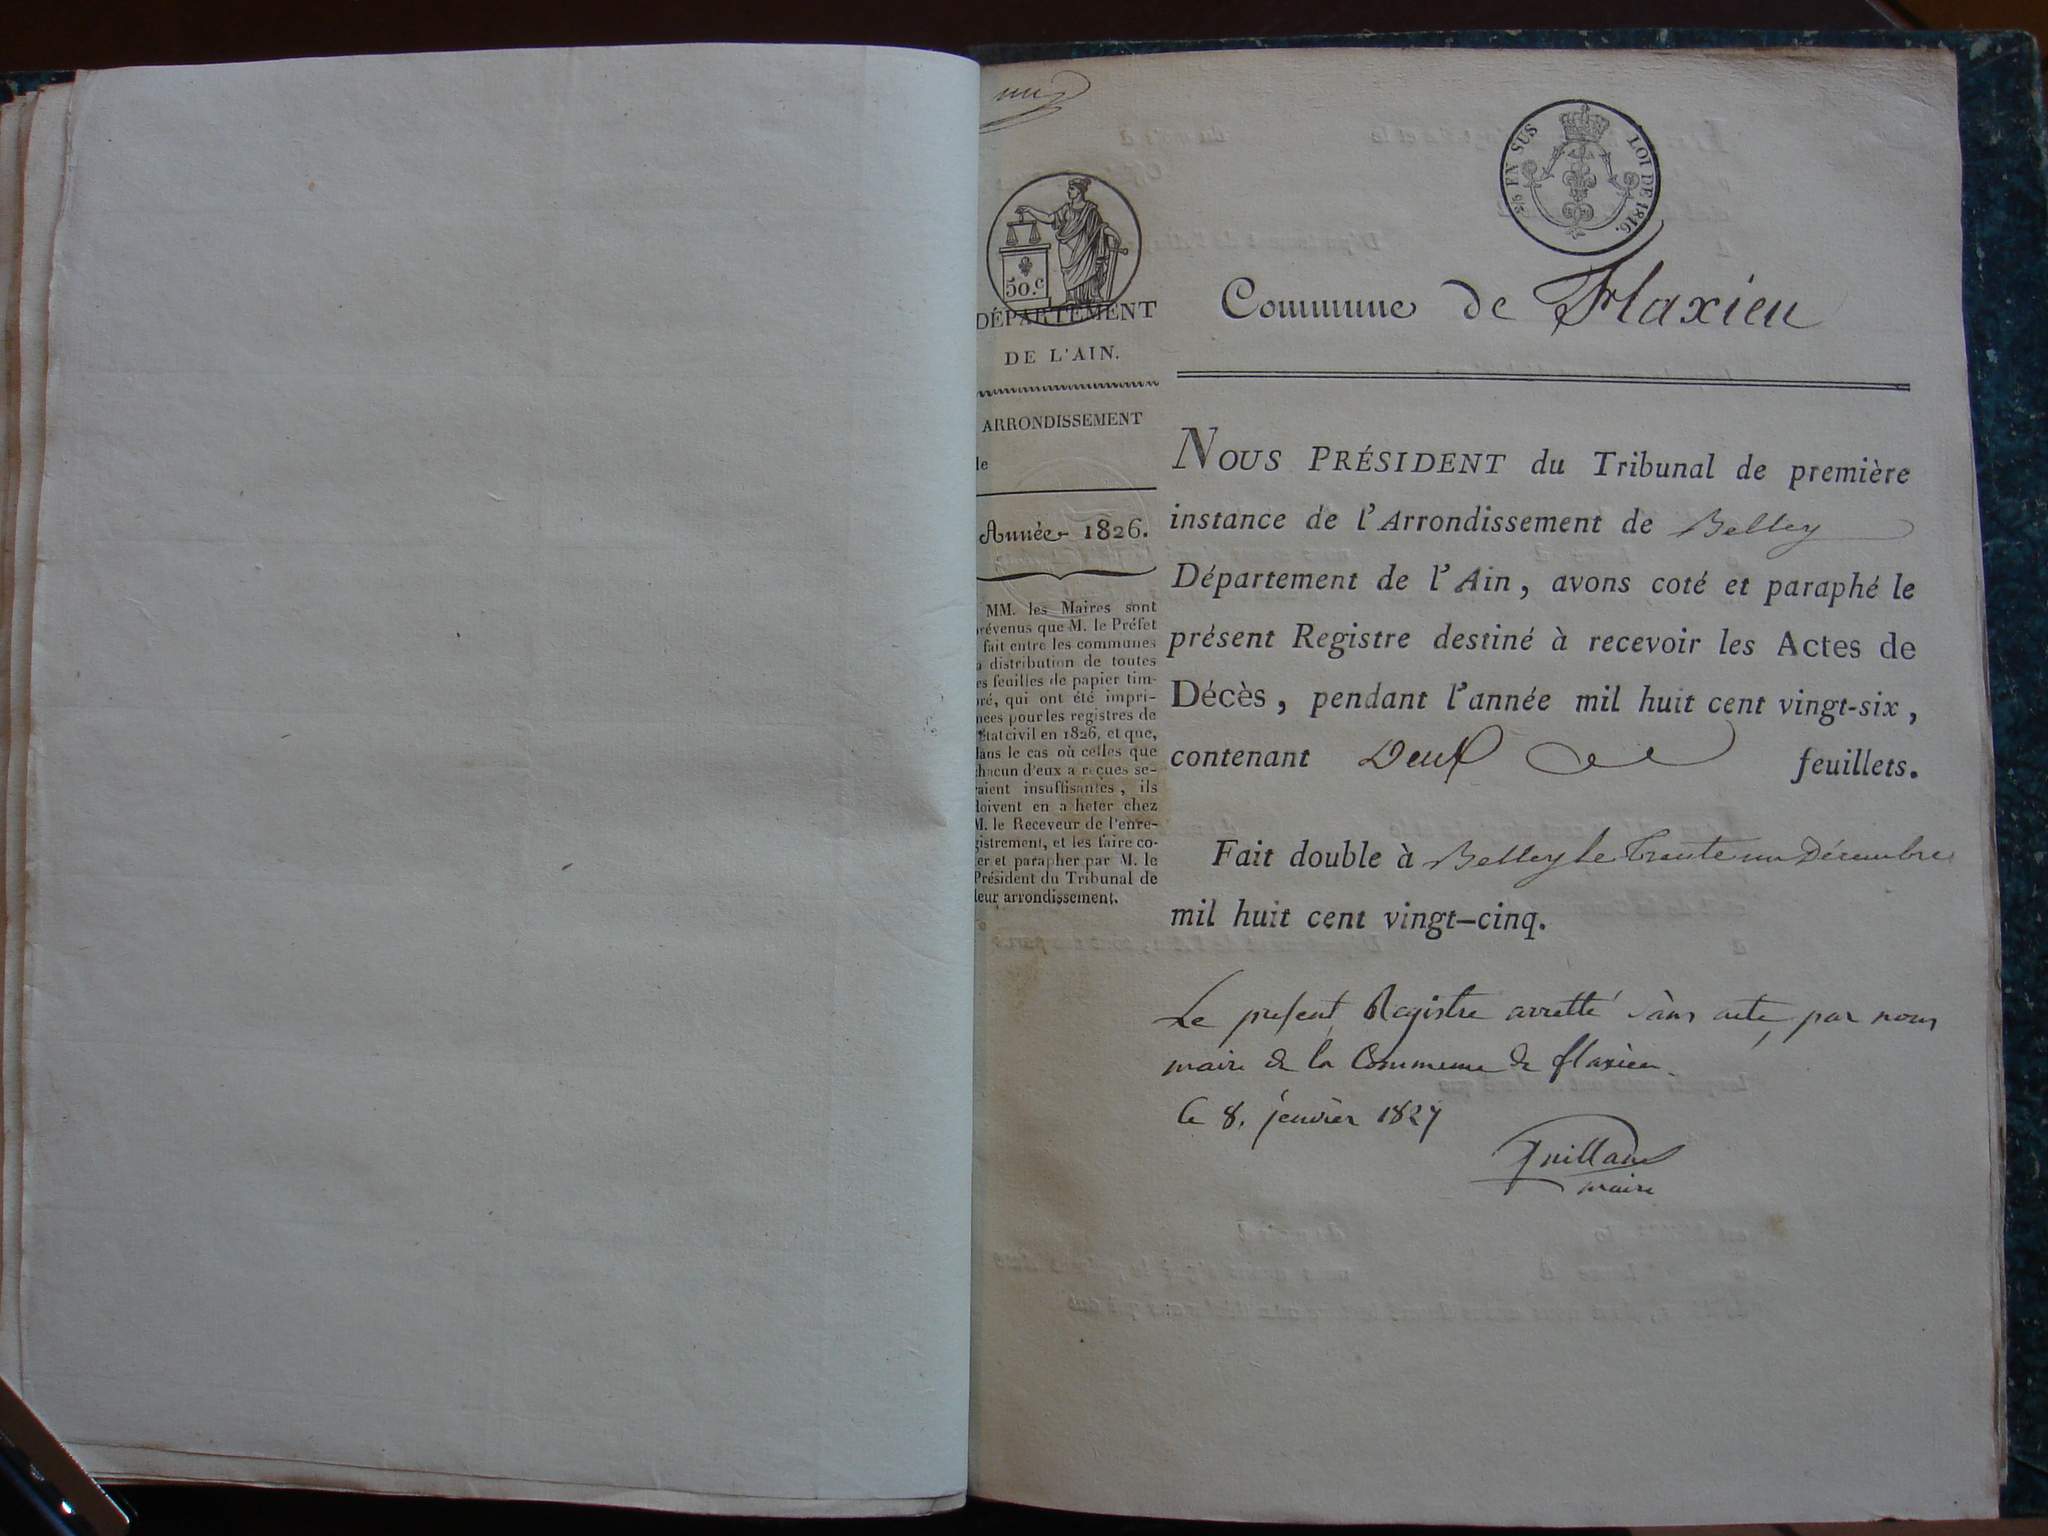 2/5 EN SUS LOI DE 1816.
50.c
DÉPARTEMENT
DE L'AIN.
ARRONDISSEMENT
de
Année 1826.
MM. les Maires sont
prévenus que M. le Préfet
fait entre les communes
distribution de toutes
es feuilles de papier tim-
bré, qui ont été impri-
mées pour les registres de
état civil en 1826, et que,
dans le cas où celles que
chacun d'eux a reçues se-
raient insuffisantes, ils
doivent en a heter chez
M. le Receveur de l'enre-
gistrement, et les faire co-
ter et parapher par M. le
Président du Tribunal de
leur arrondissement.
Commune de Flaxieu
NOUS PRÉSIDENT du Tribunal de première
instance de l'Arrondissement de Belley
Département de l'Ain, avons coté et paraphé le
présent Registre destiné à recevoir les Actes de
Décès, pendant l'année mil huit cent vingt-six,
contenant Deux feuillets.
Fait double à Belley le Trente un Décembre
mil huit cent vingt-cinq.
Le present Registre arretté sàns acte, par nous
maire de la Commune de flaxieu.
le 8. janvier 1827
maire